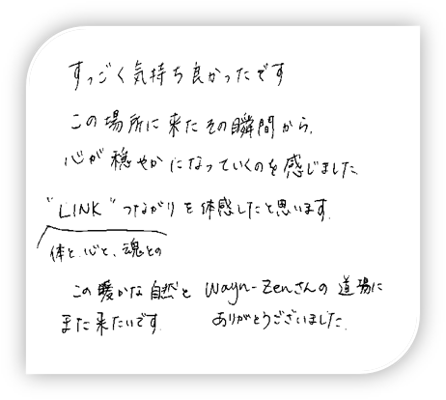 すっごく気持ち良かったです
この場所に来たその瞬間から、
心が穏やかになっていくのを感じました
"LINK" つながりを体感したと思います。
体と、心と、魂との
この暖かな自然と Wayn-Zenさんの道場に
また来たいです。 ありがとうございました。